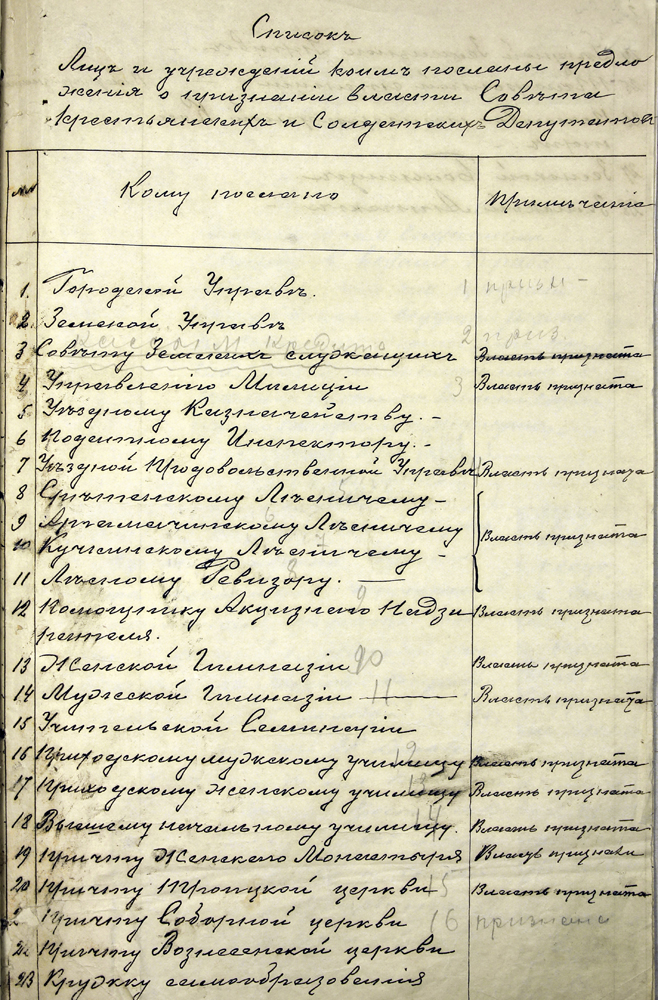 Списокъ
Лицъ и учрежденій коимъ посланы предло
женія о признаніи власти Совѣта
крестьянскихъ и Солдатскихъ Депутатов
№№
Кому послано
Примѣчаніе
1. Городской Управѣ. 1 призн -
2. Земской Управѣ 2 приз.
3 Совѣту Земскихъ служащихъ Власть призната
4 Управленію Милиціи 3 Власть призната
5 Уѣздному Казначейству. -
6 Податному Инспектору. -
7 Уѣздной Продовольственной Управѣ Власть призната
8 Лѣсничему -
9 Лѣсничему Власть призната
10 Лѣсничему -
11 Лѣсному Ревизору. —
12 Помощнику Акцизнаго Надзи 9 Власть призната
рателя.
13 Женской Гимназіи 10 Власть призната
14 Мужской Гимназіи 11 — Власть призната
15 Учительской Семинаріи
16 Приходскому мужскому училищу 12 Власть призната
17 Приходскому женскому училищу 13 Власть призната
18 Высшему начальному училищу. 14 Власть призната
19 Причту Женскаго Монастыря Власть признали
20 Причту Троицкой церкви 15 Власть призната
2 Причту Соборной церкви 16 признана
22 Причту Вознесенской церкви
23 Кружку самообразованія